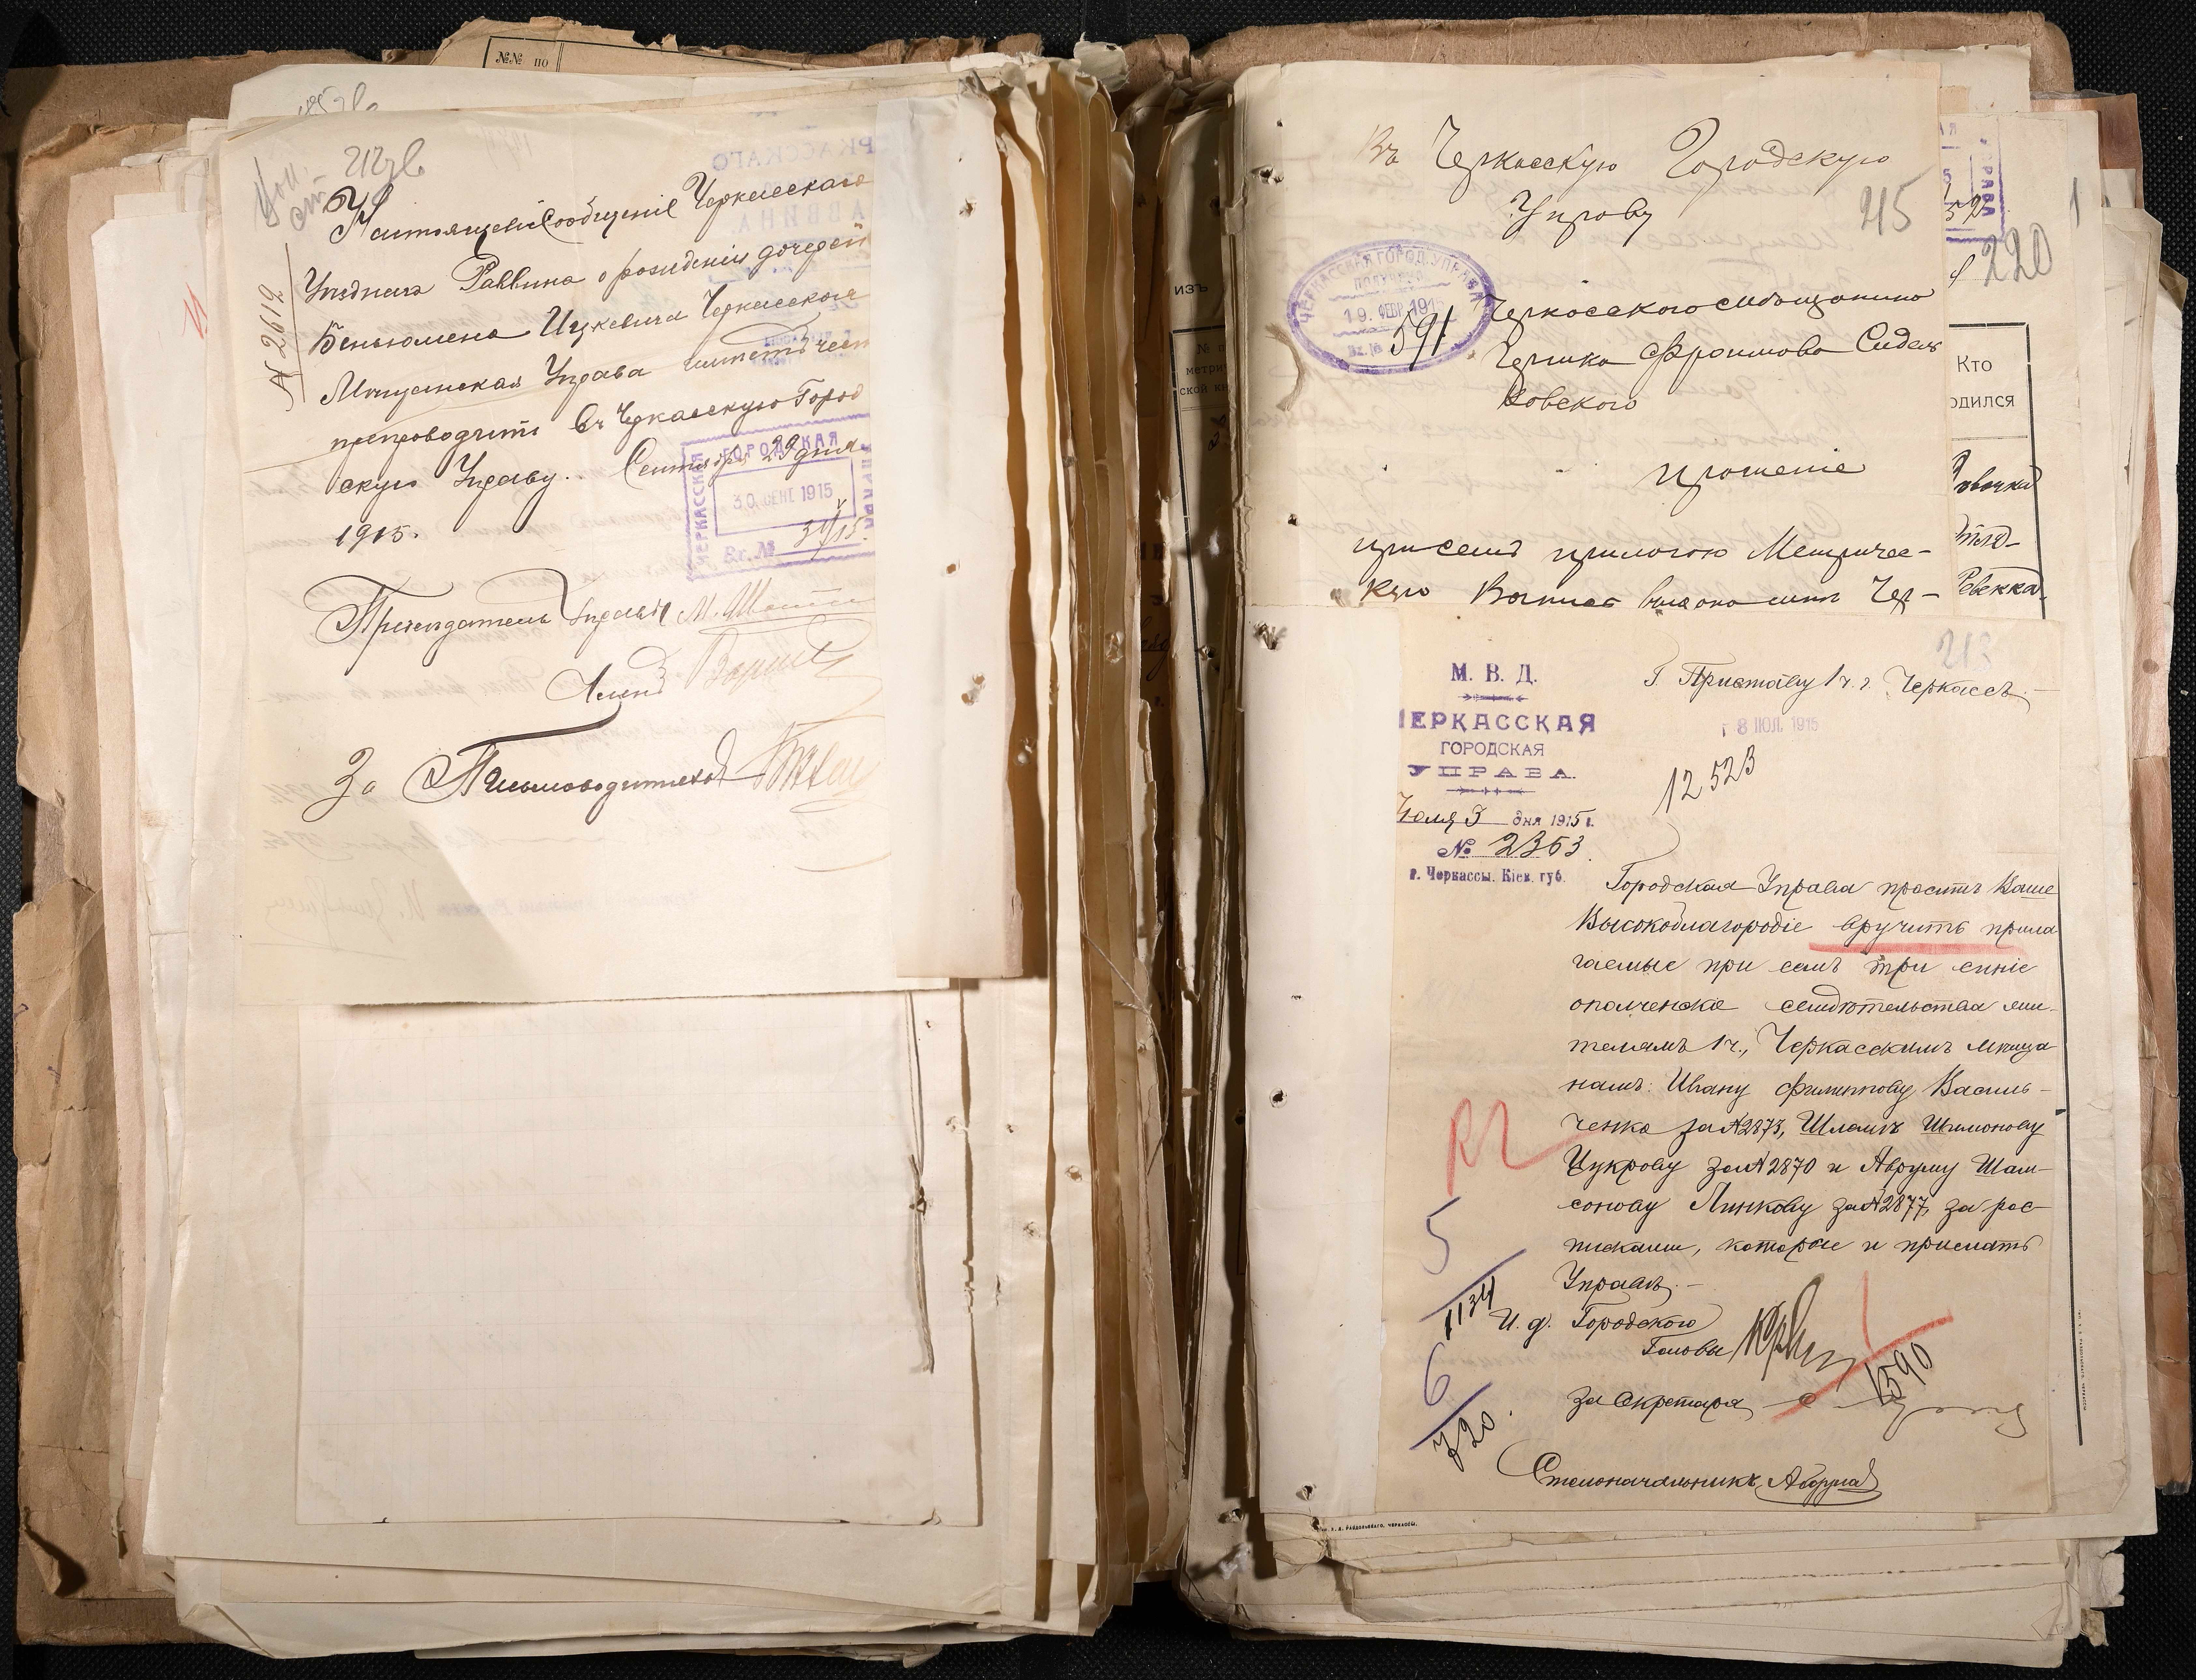 №№ по
212 об
№ 2612
Настоящее Сообщеніе Черкасскаго
Уѣзднаго Раввина о рожденіи дочерей
Беньюмена Ицковича Черкасская
Мѣщанская Управа имѣетъ честь
препроводить въ Черкасскую Город
скую Управу. Сентября 29 дня
1915.
ЧЕРКАССКАЯ ГОРОДСКАЯ УПРАВА
30 СЕНТ 1915
Вх. №
Предсѣдатель Управы
Членъ
За Письмоводителя
изъ
Въ Черкасскую Городскую
Управу
215
ЧЕРКАССКАЯ ГОРОД. УПРАВА
ПОЛУЧЕНО
19 ФЕВР 191
Вх. № 591
Черкасского Мѣщанина
Гершка Фроимова Сидель
ковского
прошеніе
при семъ прилагаю Метричес-
кую
220
1
УПРАВА
Кто
одился
Ревекка
213
М. В. Д.
ЧЕРКАССКАЯ
ГОРОДСКАЯ
УПРАВА.
Іюля 3 дня 1915 г.
№ 2363
г. Черкассы. Кіев. губ.
Г. Приставу 1 ч. г. Черкассъ.
8 ІЮЛ. 1915
12523
Городская Управа проситъ Ваше
Высокоблагородіе вручить прила
гаемые при семъ три синіе
ополченскіе свидѣтельства жи-
телямъ 1 ч., Черкасскимъ мѣща
намъ: Ивану Филиппову Василь-
ченко за № 2873, Шлемѣ Шимонову
Цукрову за № 2870 и Авруму Шам-
сонову Линкову за № 2877, за рос-
писками, которые и прислать
Управѣ.
И. д. Городского
Головы
За Секретаря
1590
Столоначальникъ
5
1134
6
720